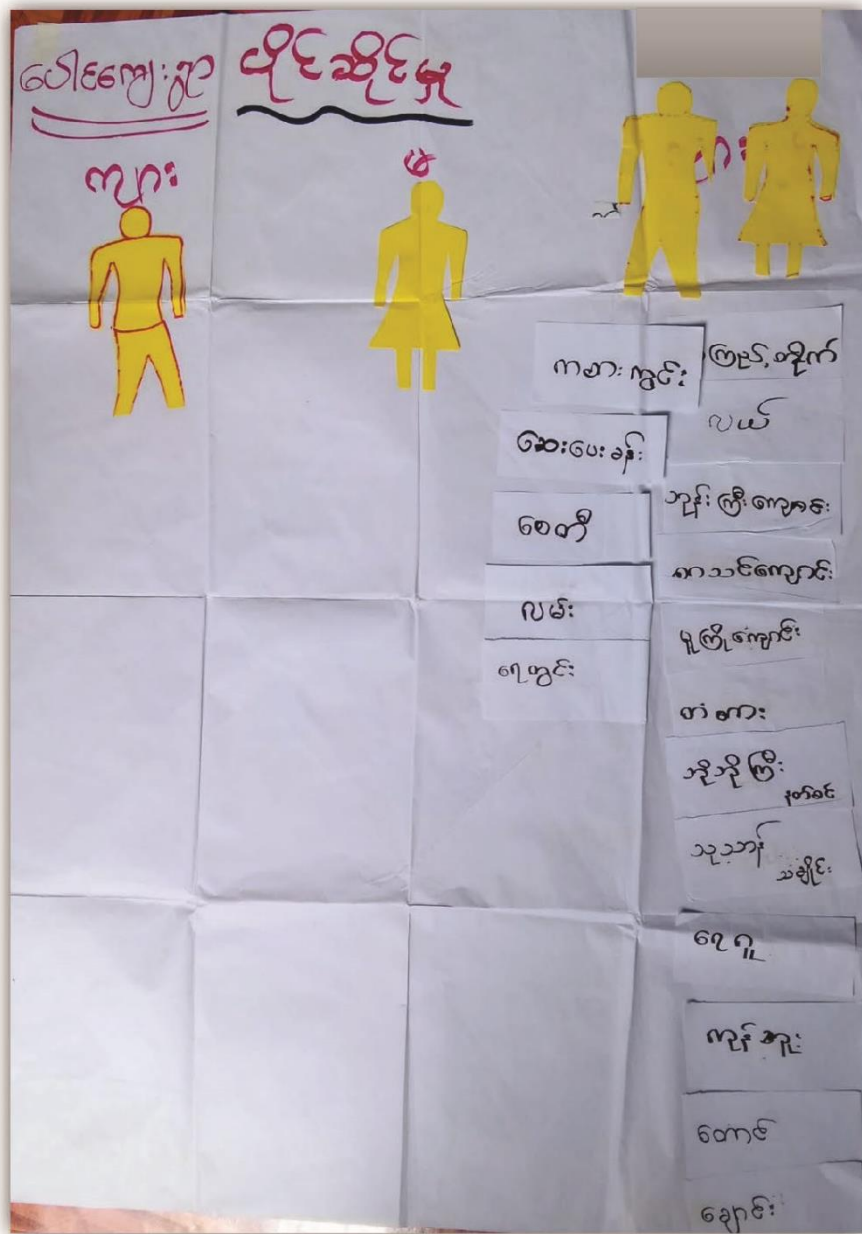 ပေါင်ကျေးရွာ ပိုင်ဆိုင်မှု
ကျား
မ
ကစားကွင်း
ဆေးပေးခန်း
စေတီ
လမ်း
ရေတွင်း
ကြည့်တိုက်
လယ်
ဘုန်းကြီးကျောင်း
စာသင်ကျောင်း
မူကြိုကျောင်း
တံတား
ဘိုးဘိုးကြီး နတ်စင်
သုသာန် သချိုင်း
ရေဂူ
ကုန်းဘူး
တောင်
ချောင်း